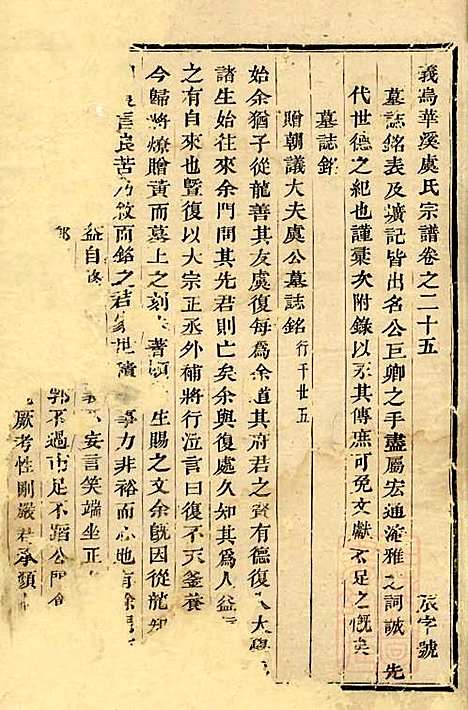 義烏華溪虞氏宗譜卷之二十五 辰字號
墓誌銘表及壙記皆出名公巨卿之手盡屬宏通淹雅之詞誠先
代世德之紀也謹彙次附錄以永其傳庶可免文獻不足之慨矣
墓誌銘
贈朝議大夫虞公墓誌銘 行千廿五
始余猶子從龍善其友虞復每為余道其府君之賢有德復 大學
諸生始往來余門問其先君則亡矣余與復處久知其為人益
之有自來也暨復以大宗正丞外補將行泣言曰復不天釜養
今歸將燎贈黃而墓上之刻 著碩 生賜之文余既因從龍知
言良苦乃敘而銘之君 世 事力非裕而心地有餘
益自 妄言笑端坐正
郭不過市足不蹈公門
厥考性剛嚴君承顏